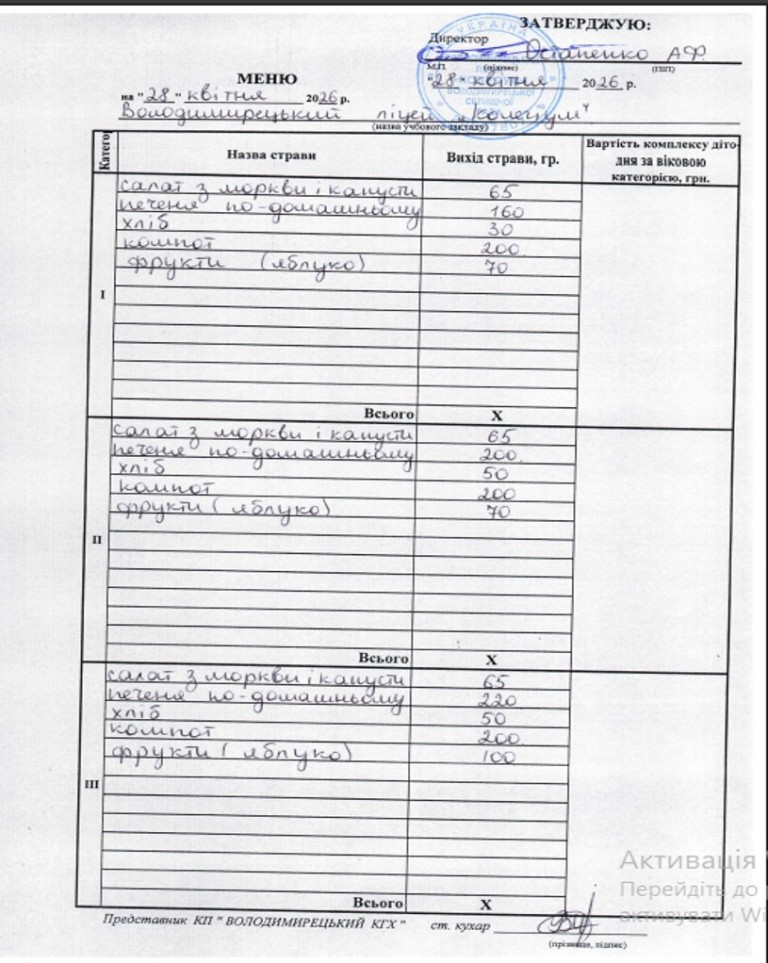 ЗАТВЕРДЖУЮ:
Директор
Остапенко А Ф
М.П. (підпис) (ПІП)
"28" квітня 2026 р.
МЕНЮ
на "28" квітня 2026 р.
Володимирецький ліцей "Колегіум"
(назва учбового закладу)
Категорія Назва страви Вихід страви, гр. Вартість комплексу діто-дня за віковою категорією, грн.
I
салат з моркви і капусти 65
печеня по-домашньому 160
хліб 30
компот 200
фрукти (яблуко) 70
Всього Х
II
салат з моркви і капусти 65
печеня по-домашньому 200
хліб 50
компот 200
фрукти ( яблуко) 70
Всього Х
III
салат з моркви і капусти 65
печеня по-домашньому 220
хліб 50
компот 200
фрукти ( яблуко) 100
Всього Х
Представник КП " ВОЛОДИМИРЕЦЬКИЙ КГХ " ст. кухар
(прізвище, підпис)
Активація
Перейдіть до
активувати Wi